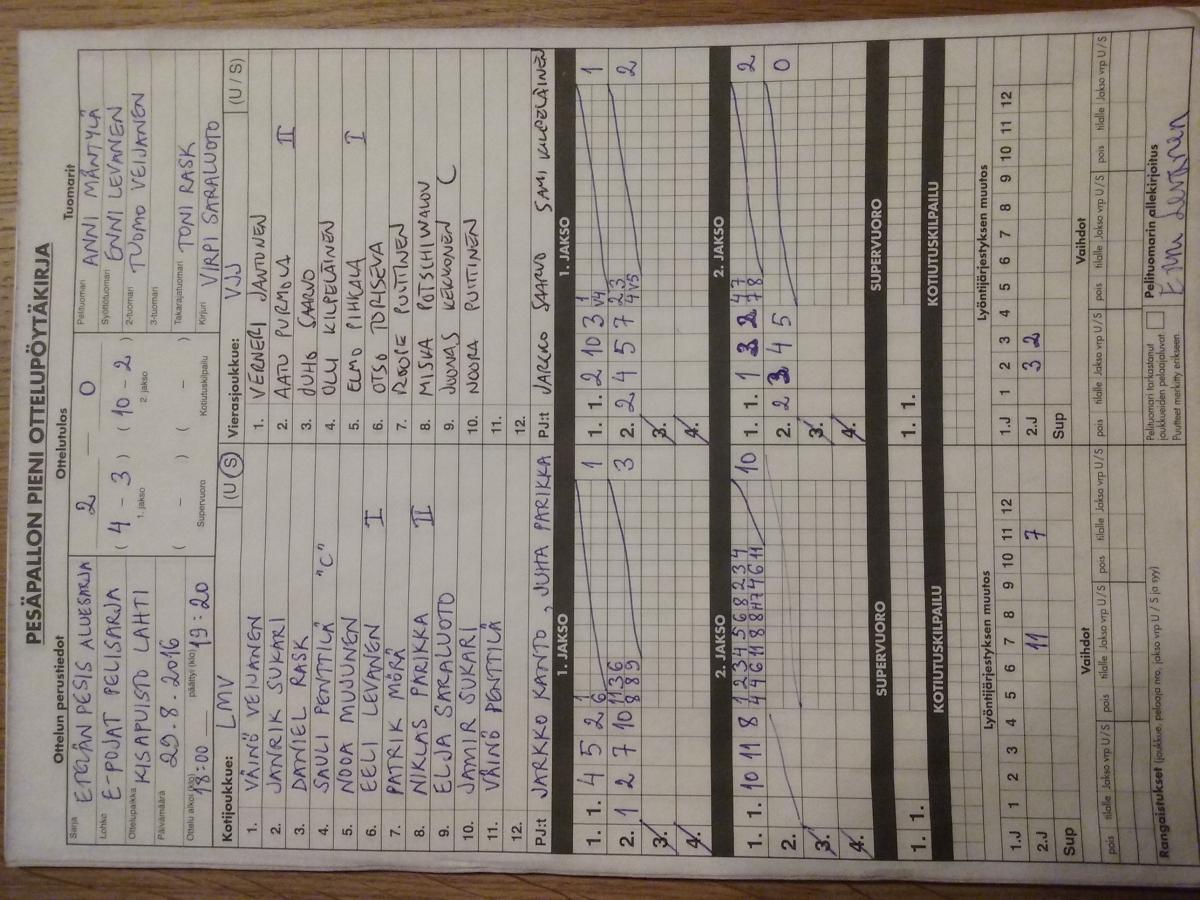 PESÄPALLON PIENI OTTELUPÖYTÄKIRJA
Ottelun perustiedot
Sarja ETELÄN PESIS ALUESARJA
Lohko E-POJAT PELISARJA
Ottelupaikka KISAPUISTO LAHTI
Päivämäärä 29.8.2016
Ottelu alkoi (klo) 18:00 päättyi (klo) 19:20
Ottelutulos
2 — 0
( 4 – 3 ) ( 10 – 2 )
1. jakso 2. jakso
( – ) ( – )
Supervuoro Kotiutuskilpailu
Tuomarit
Pelituomari ANNI MÄNTYLÄ
Syöttötuomari ENNI LEVANEN
2-tuomari TUOMO VEIJANEN
3-tuomari
Takarajatuomari TONI RASK
Kirjuri VIRPI SARALUOTO
Kotijoukkue: LMV (U / S)
1. VÄINÖ VEIJANEN
2. JANRIK SUKARI
3. DANIEL RASK
4. SAULI PENTTILÄ "C"
5. NOOA MUJUNEN
6. EELI LEVANEN I
7. PATRIK MÖRÄ
8. NIKLAS PARIKKA II
9. ELJA SARALUOTO
10. JAMIR SUKARI
11. VÄINÖ PENTTILÄ
12.
PJ:t JARKKO KANTO, JUHA PARIKKA
Vierasjoukkue: VJJ (U / S)
1. VERNERI JANTUNEN
2. AATU PURMOLA II
3. JUHO SAARNO
4. OLLI KILPELÄINEN
5. ELMO PIHKALA I
6. OTSO TORISEVA
7. ROOPE PUITTINEN
8. MISKA POTSCHIWALOV
9. JOONAS KEKKONEN C
10. NOORA PUITTINEN
11.
12.
PJ:t JARKKO SAARNO SAMI KILPELÄINEN
1. JAKSO
1. 1. 4 5 2 1 6 1
2. 1 2 7 10 11 3 6 8 8 9 3
3.
4.
1. JAKSO
1. 1. 2 10 3 1 V4 1
2. 2 4 5 7 2 3 4 V5 2
3.
4.
2. JAKSO
1. 1. 10 11 8 1 2 3 4 5 6 8 2 3 4 10
2.
3.
4.
2. JAKSO
1. 1. 1 3 2 4 7 7 8 2
2. 2 3 4 5 0
3.
4.
SUPERVUORO
1. 1.
SUPERVUORO
1. 1.
KOTIUTUSKILPAILU
KOTIUTUSKILPAILU
Lyöntijärjestyksen muutos
1 2 3 4 5 6 7 8 9 10 11 12
1.J
2.J 11 7
Sup
Lyöntijärjestyksen muutos
1 2 3 4 5 6 7 8 9 10 11 12
1.J
2.J 3 2
Sup
Vaihdot
pois tilalle Jakso vrp U / S pois tilalle Jakso vrp U / S pois tilalle Jakso vrp U / S
Vaihdot
pois tilalle Jakso vrp U / S pois tilalle Jakso vrp U / S pois tilalle Jakso vrp U / S
Rangaistukset (joukkue, pelaaja nro, jakso vrp U / S ja syy)
Pelituomari tarkastanut
joukkueiden pelaajaluvat
Puutteet merkitty erikseen
Pelituomarin allekirjoitus
Enni Levanen